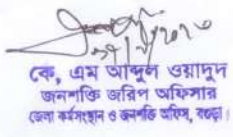 কে, এম আব্দুল ওয়াদুদ
জনশক্তি জরিপ অফিসার
জেলা কর্মসংস্থান ও জনশক্তি অফিস, বগুড়া।